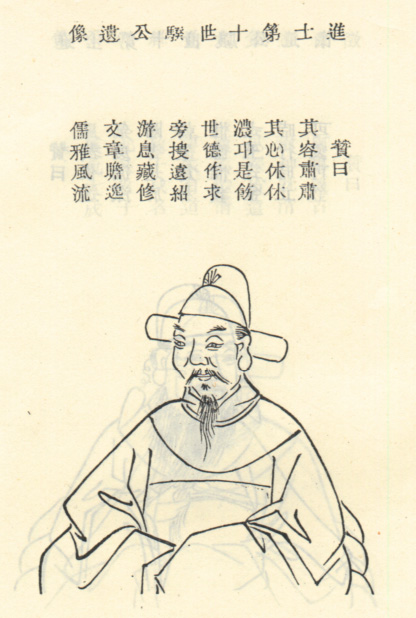 進士第十世騤公遺像
贊曰
其容肅肅
其心休休
濃是飭
世德作求
旁搜遠紹
游息藏修
文章贍逸
儒雅風流